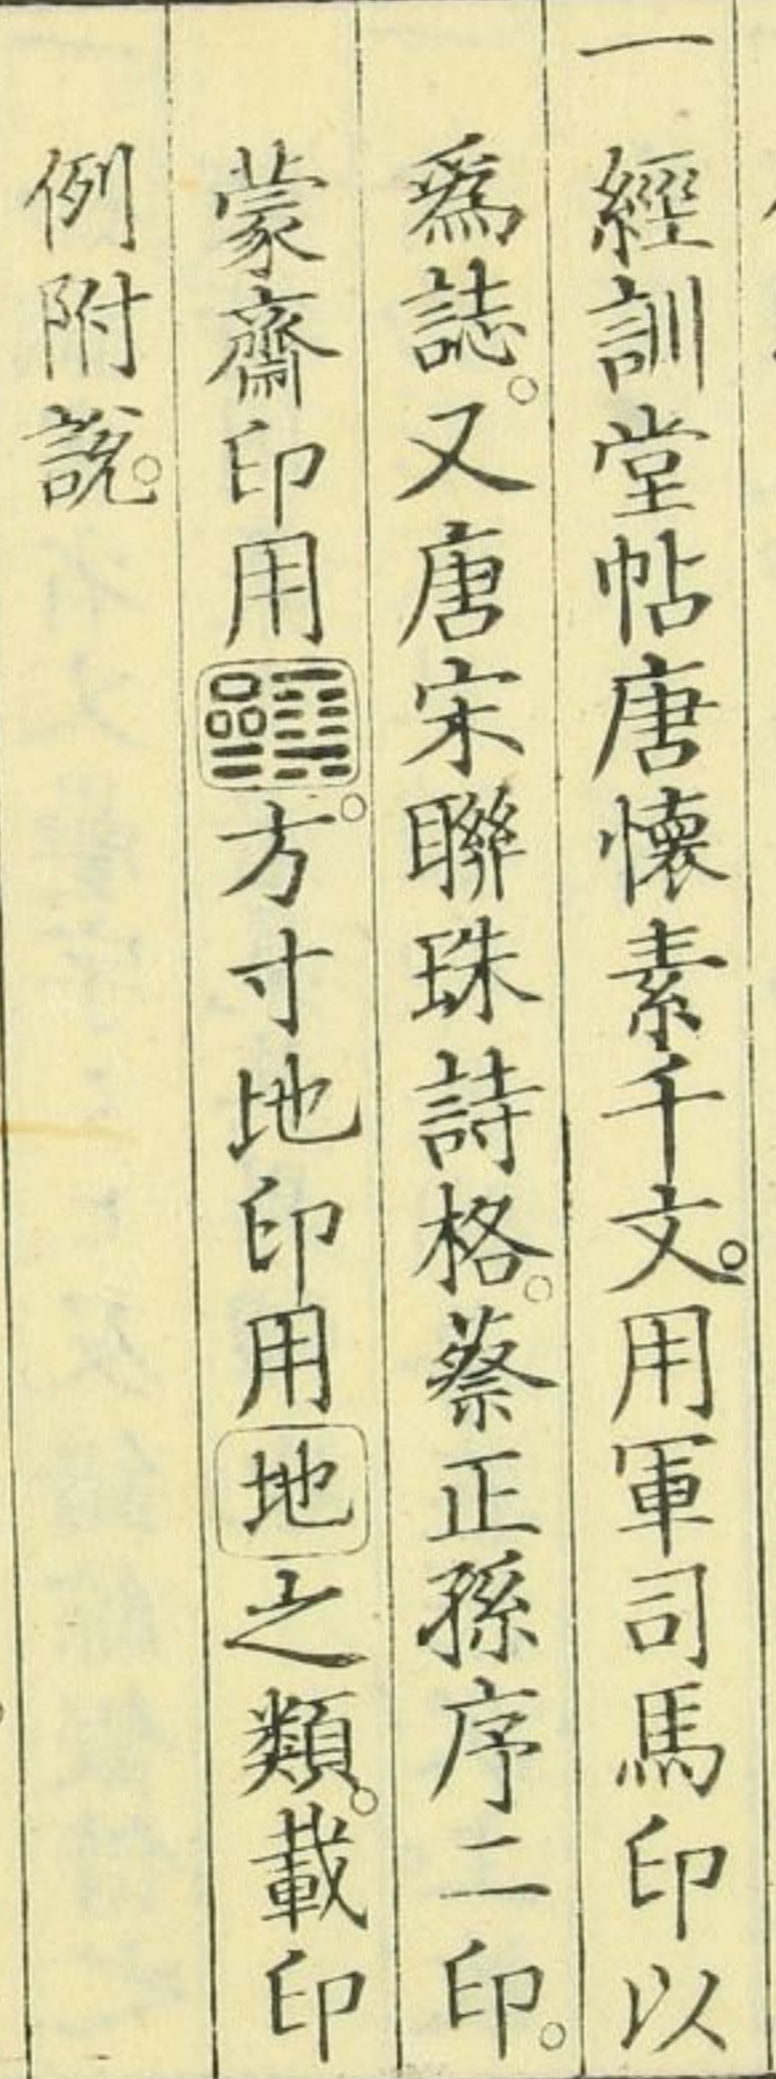 一經訓堂帖唐懷素千文。用軍司馬印以
爲誌。又唐宋聯珠詩格。蔡正孫序二印。
蒙齋印用。方寸地印用地之類。載印
例附說。